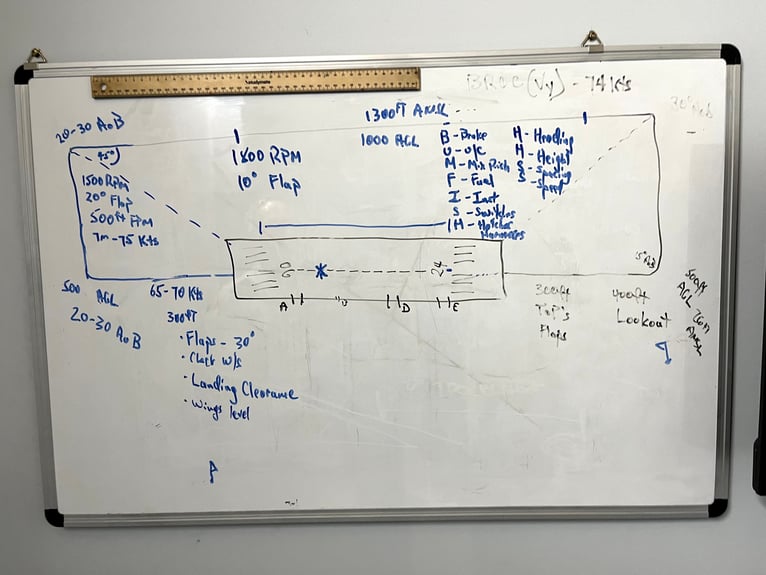 BROC (Vy) - 74 Kts
1300FT AMSL
1000 AGL
20-30 AoB
45°
1500 RPM
20° Flap
500ft FPM
70-75 Kts
1800 RPM
10° Flap
B - Brake
U - U/C
M - Mix Rich
F - Fuel
I - Inst
S - Switches
H - Hatches
Harnesses
H - Heading
H - Height
S - Spacing
S - Speed
06
24
A
D
E
15° AoB
500 AGL
20-30 AoB
65-70 Kts
300FT
• Flaps - 30°
• Check w/s
• Landing Clearance
• Wings level
300ft
T's P's
Flaps
400ft
Lookout
500ft
AGL
AMSL